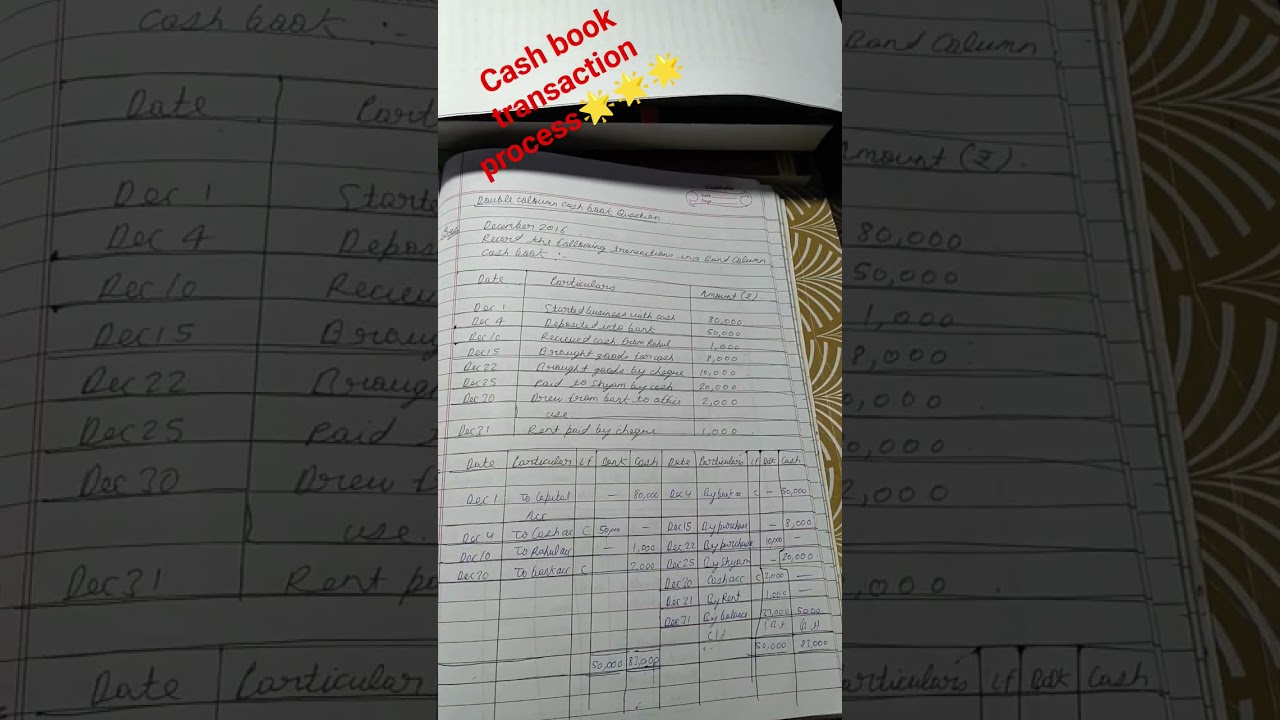 Cash book
transaction
process🌟🌟🌟
Double coloumn cash book Question
December 2016
Record the following transactions in a Bank Column
Cash book :-
Date Particulars Amount (₹)
Dec 1 Started business with cash 80,000
Dec 4 Deposited into bank 50,000
Dec 10 Recieved cash from Rahul 1,000
Dec 15 Brought goods for cash 8,000
Dec 22 Brought goods by cheque 10,000
Dec 25 Paid to Shyam by cash 20,000
Dec 30 Drew from bank to office 2,000
use
Dec 31 Rent paid by cheque 1,000
Date Particular Lf Bank Cash Date Particulars Lf Bank Cash
Dec 1 To Capital — 80,000 Dec 4 By bank ac C — 50,000
Acc
Dec 4 To Cash ac C 50,000 — Dec 15 By purchase — 8,000
Dec 10 To Rahul acc — 1,000 Dec 22 By purchase 10,000 —
Dec 30 To bank acc C 2,000 Dec 25 By Shyam — 20,000
Dec 30 Cash acc C 2,000 —
Dec 31 By Rent 1,000 —
Dec 31 By balance 37,000 5000
c/d
50,000 83,000
50,000 83,000